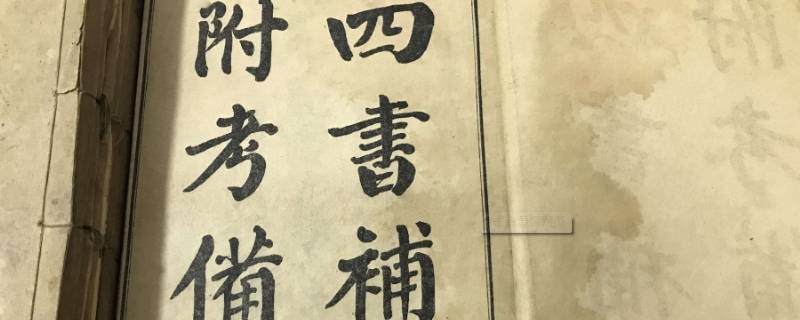 四書補
附考備